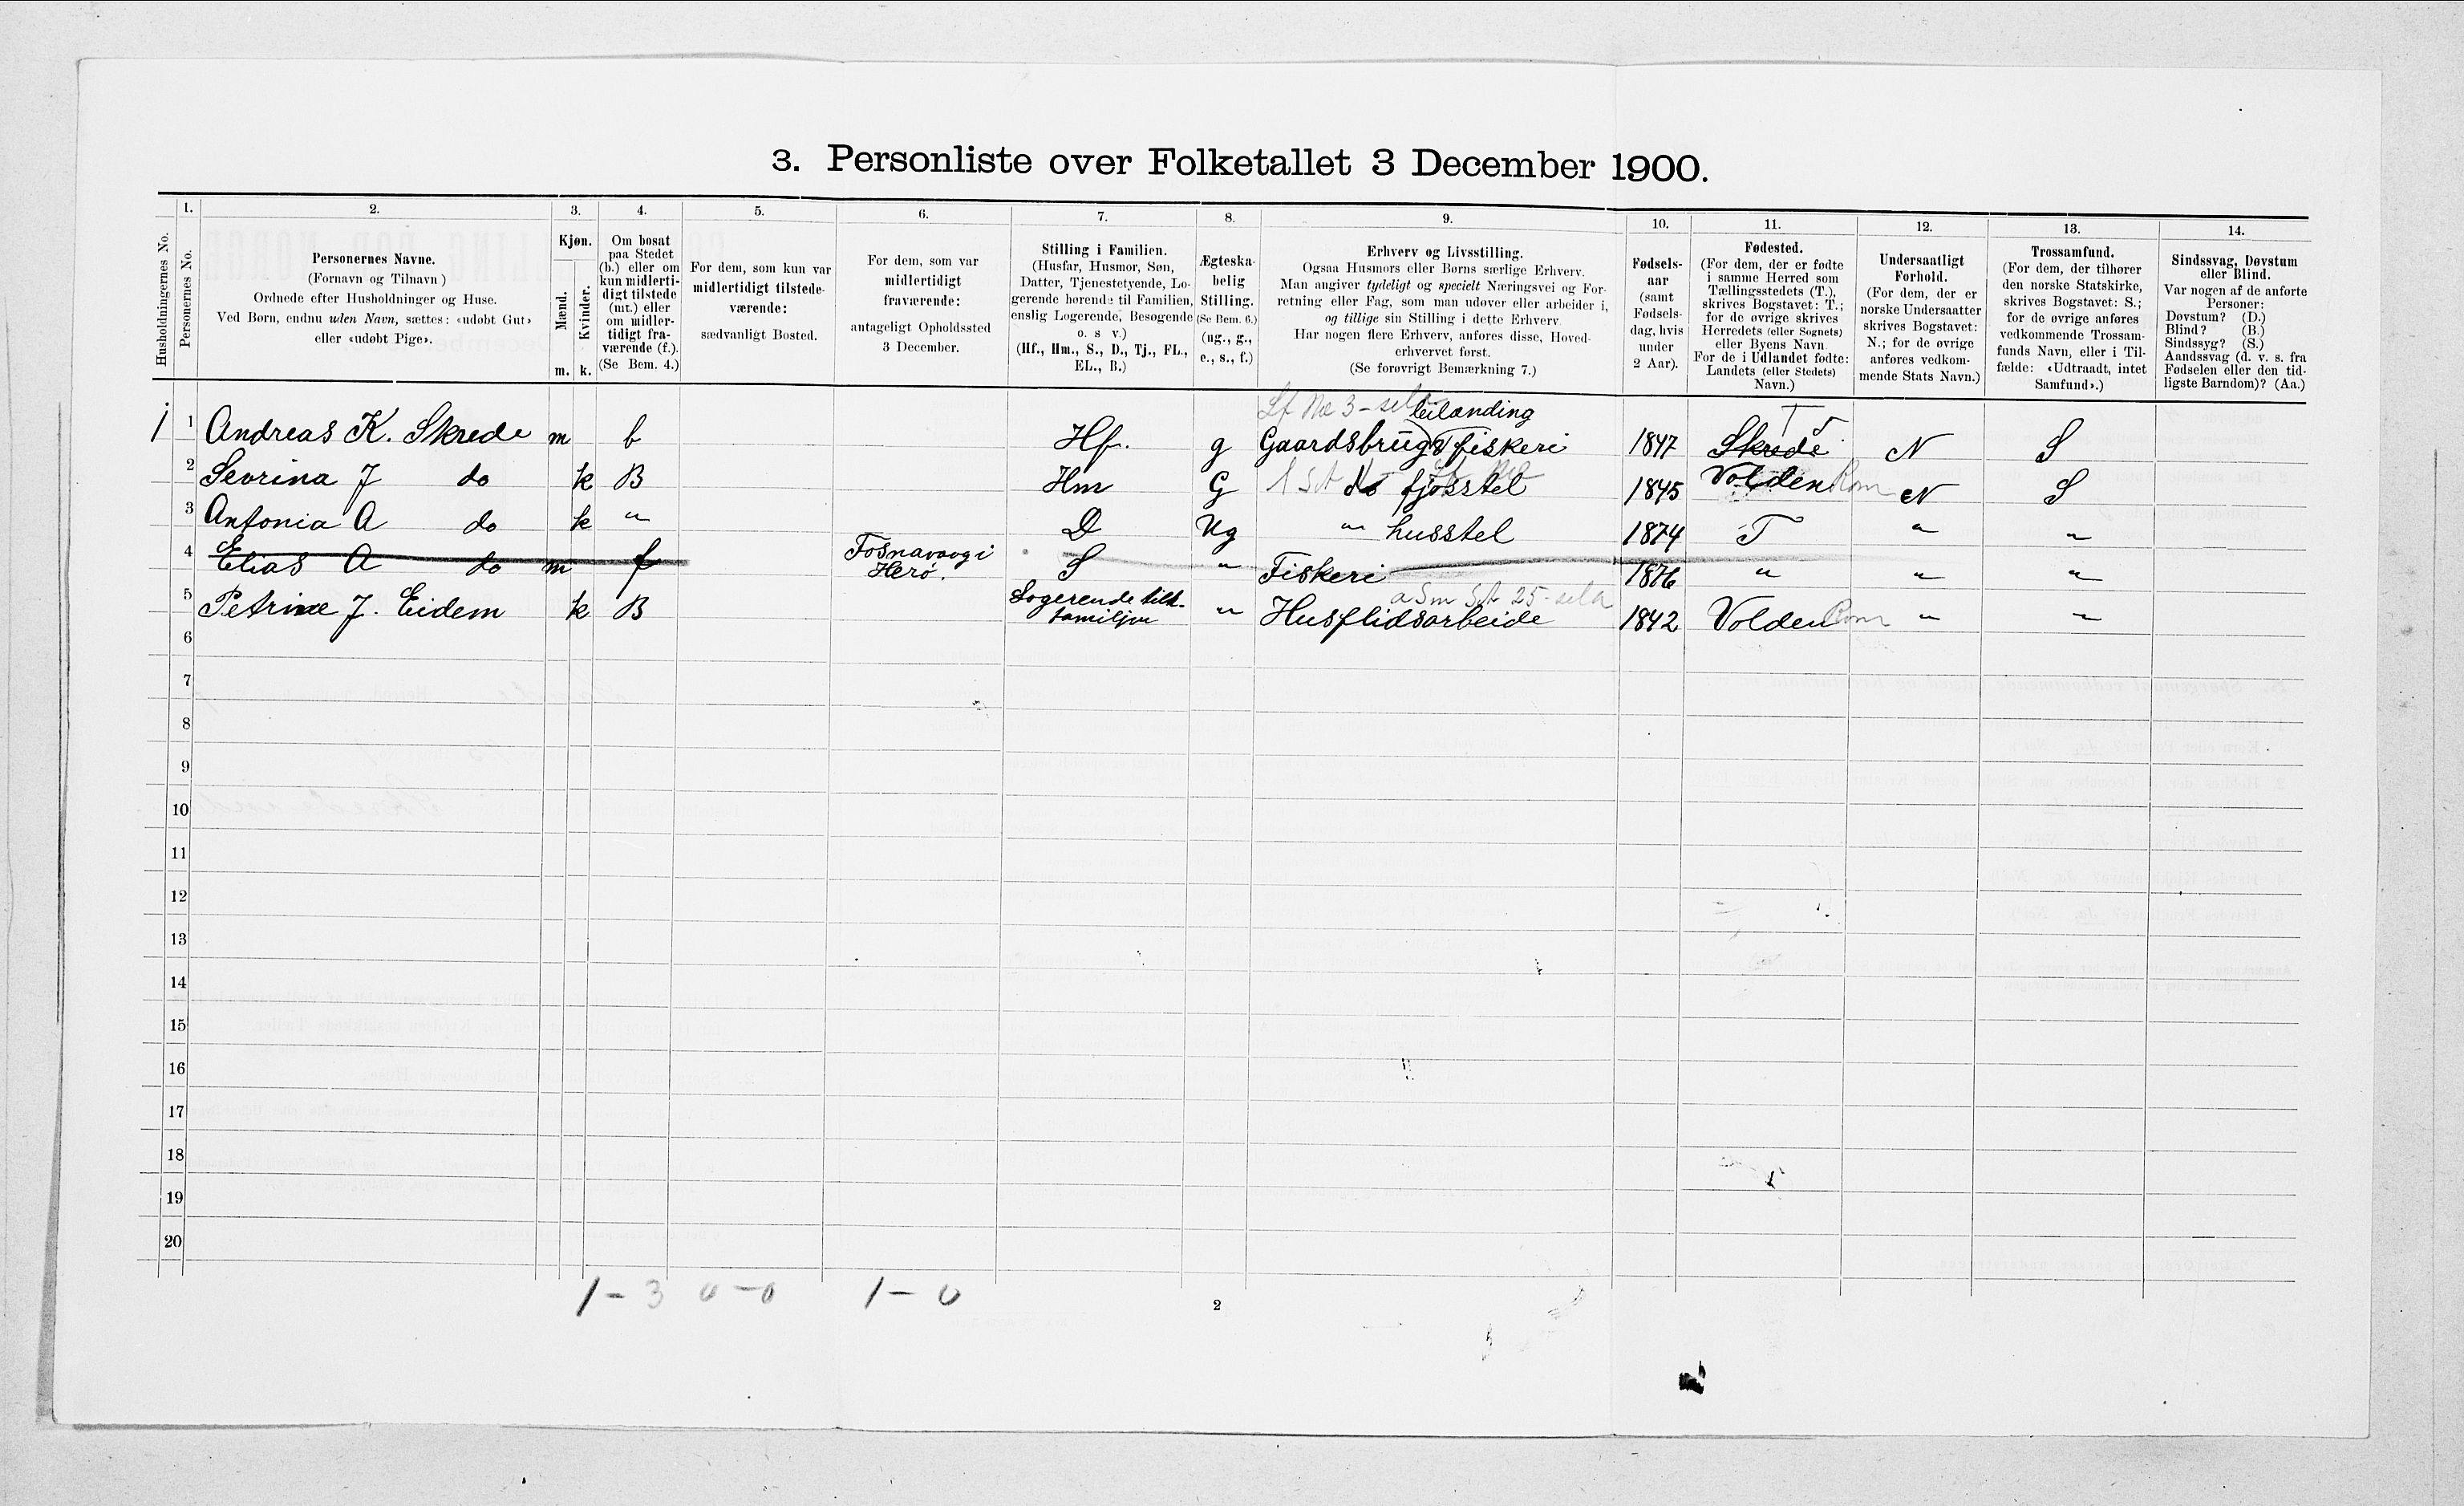 3. Personliste over Folketallet 3 December 1900.
1. 2. 3. 4. 5. 6. 7. 8. 9. 10. 11. 12. 13. 14.
Husholdningernes No.
Personernes No.
Personernes Navne.
(Fornavn og Tilnavn)
Ordnede efter Husholdninger og Huse.
Ved Børn, endnu uden Navn, sættes: «udøbt Gut»
eller «udøbt Pige».
Kjøn.
Mænd.
Kvinder.
m. k.
Om bosat
paa Stedet
(b.) eller om
kun midlerti-
digt tilstede
(mt.) eller
om midler-
tidigt fra-
værende (f.).
(Se Bem. 4.)
For dem, som kun var
midlertidigt tilstede-
værende:
sædvanligt Bosted.
For dem, som var
midlertidigt
fraværende:
antageligt Opholdssted
3 December.
Stilling i Familien.
(Husfar, Husmor, Søn,
Datter, Tjenestetyende, Lo-
gerende hørende til Familien,
enslig Logerende, Besøgende
o. s v.)
(Hf., Hm., S., D., Tj., FL.,
EL., B.)
Ægteska-
belig
Stilling.
(Se Bem. 6.)
(ug., g.,
e., s., f.)
Erhverv og Livsstilling.
Ogsaa Husmors eller Børns særlige Erhverv.
Man angiver tydeligt og specielt Næringsvei og For-
retning eller Fag, som man udøver eller arbeider i,
og tillige sin Stilling i dette Erhverv.
Har nogen flere Erhverv, anføres disse, Hoved-
erhvervet først.
(Se forøvrigt Bemærkning 7.)
Fødsels-
aar
(samt
Fødsels-
dag, hvis
under
2 Aar).
Fødested.
(For dem, der er fødte
i samme Herred som
Tællingsstedets (T.),
skrives Bogstavet: T.;
for de øvrige skrives
Herredets (eller Sognets)
eller Byens Navn.
For de i Udlandet fødte:
Landets (eller Stedets)
Navn.)
Undersaatligt
Forhold.
(For dem, der er
norske Undersaatter
skrives Bogstavet:
N.; for de øvrige
anføres vedkom-
mende Stats Navn.)
Trossamfund.
(For dem, der tilhører
den norske Statskirke,
skrives Bogstavet: S.;
for de øvrige anføres
vedkommende Trossam-
funds Navn, eller i Til-
fælde: «Udtraadt, intet
Samfund».)
Sindssvag, Døvstum
eller Blind.
Var nogen af de anførte
Personer:
Døvstum? (D.)
Blind? (B.)
Sindssyg? (S.)
Aandssvag (d. v. s. fra
Fødselen eller den tid-
ligste Barndom)? (Aa.)
leilænding T
1 1 Andreas K. Skrede m b Hf. g Gaardsbrug fiskeri 1847 Skrede N S
2 Sevrina J do k B Hm G do fjøsstel 1845 Volden Rom N S
3 Antonia A do k " D Ug " husstel 1874 T " "
4 Elias A do m f Fosnavaag i Herø. S " Fiskeri 1876 " " "
5 Petrine J. Eidem k B Logerende till. familjen " Husflidsarbeide 1842 Volden Rom " "
6
7
8
9
10
11
12
13
14
15
16
17
18
19
20
1 - 3 0 - 0 1 - 0
2